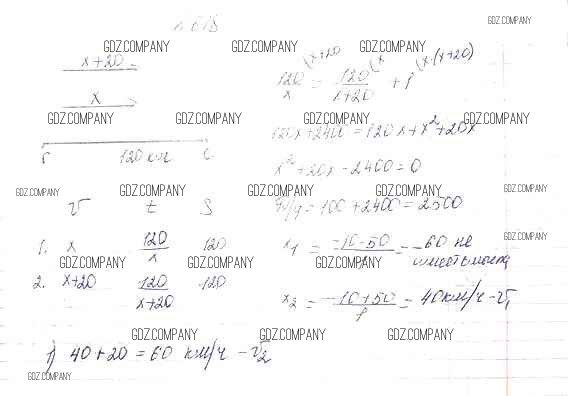 № 618
GDZ.COMPANY
GDZ.COMPANY GDZ.COMPANY GDZ.COMPANY
x+20
x
120/x (x+20 = 120/(x+20) (x + 1 (x·(x+20)
GDZ.COMPANY GDZ.COMPANY GDZ.COMPANY GDZ.COMPANY
120x+2400=120x+x²+20x
г 120 км с
GDZ.COMPANY GDZ.COMPANY GDZ.COMPANY
x²+20x-2400=0
GDZ.COMPANY GDZ.COMPANY GDZ.COMPANY GDZ.COMPANY
v t S
D/4=100+2400=2500
1. x 120/x 120
x₁ = (-10-50)/1 = -60 не
GDZ.COMPANY
GDZ.COMPANY GDZ.COMPANY GDZ.COMPANY GDZ.COMPANY
2. x+20 120/(x+20) 120
x₂ = (-10+50)/1 = 40км/ч-v₁
GDZ.COMPANY GDZ.COMPANY GDZ.COMPANY
1) 40+20=60 км/ч-v₂
GDZ.COMPANY